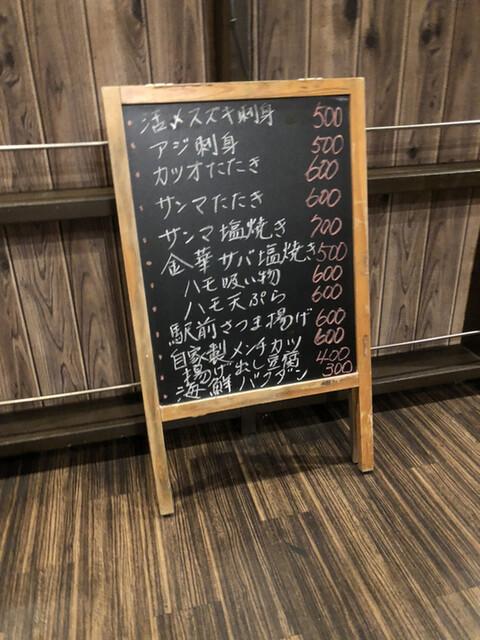 活〆スズキ刺身 500
アジ刺身 500
カツオたたき 600
サンマたたき 600
サンマ塩焼き 700
金華サバ塩焼き 500
ハモ吸い物 600
ハモ天ぷら 600
駅前さつま揚げ 600
自家製メンチカツ 600
揚げ出し豆腐 400
海鮮バクダン 300